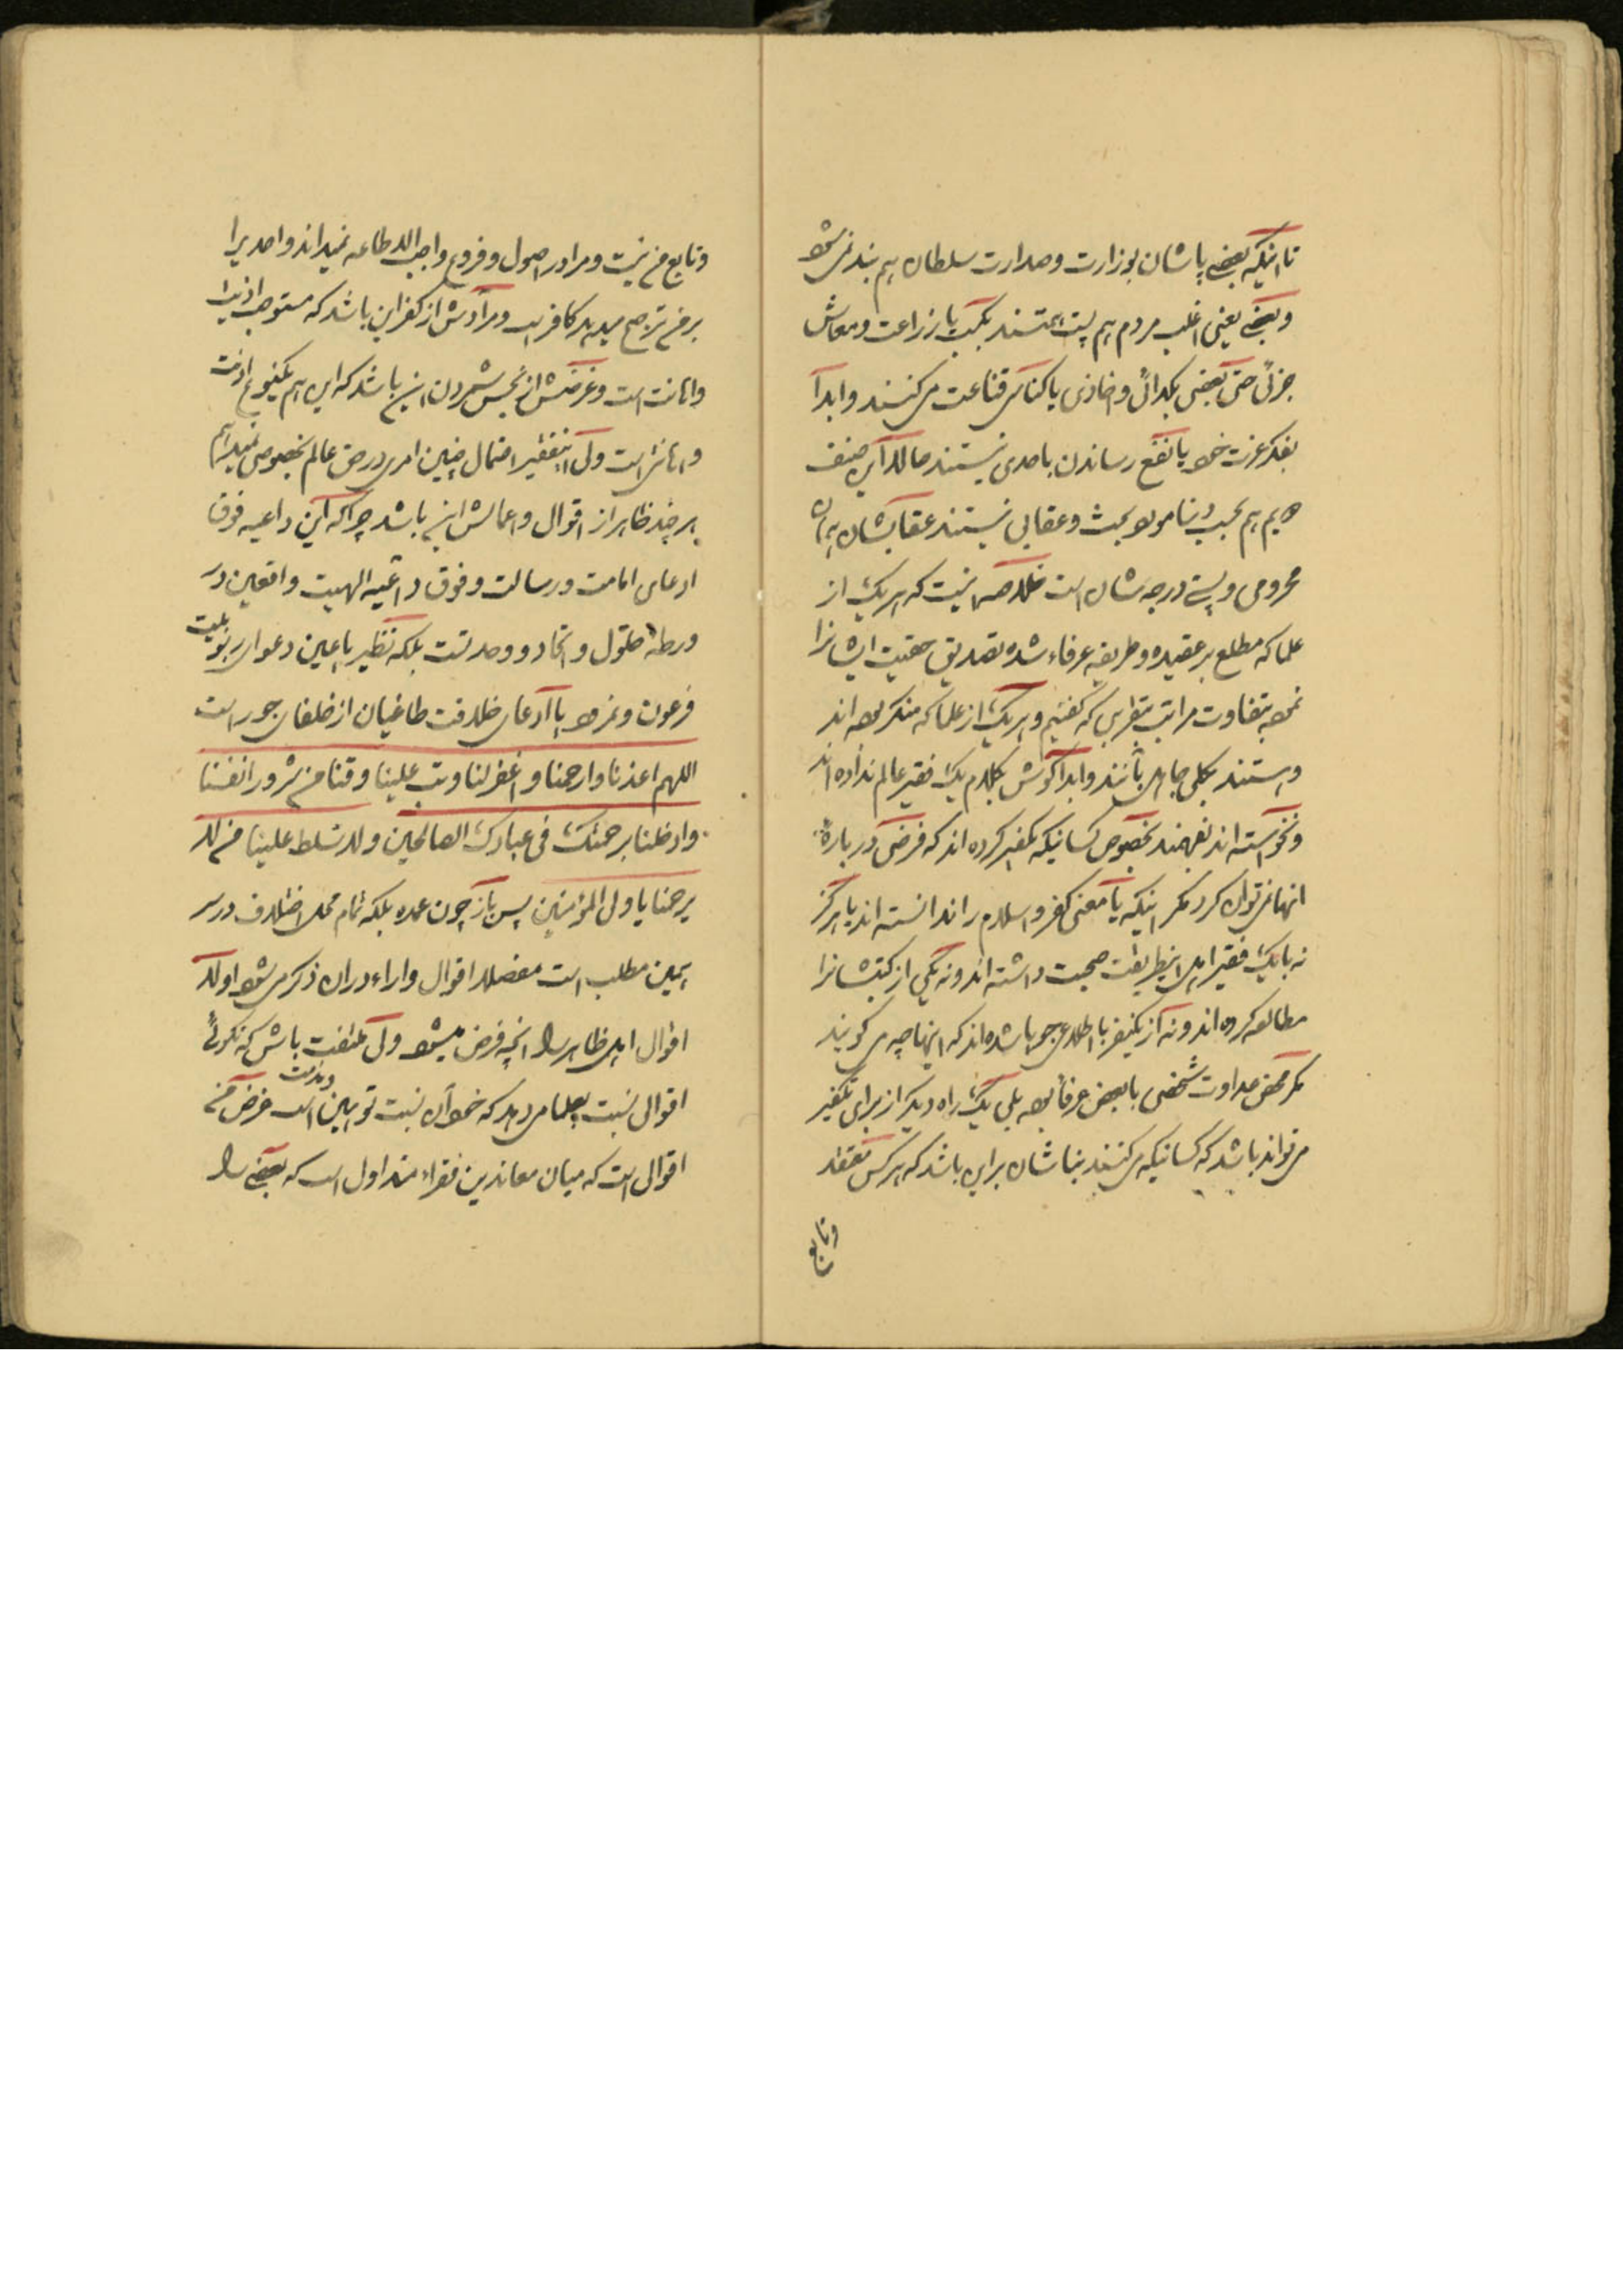 تا اینکه بعضی پاشان بوزارت و صدارت سلطان هم بند نمی‌شود
و بعضی یعنی اغلب مردم هم پست همتند بکسب یا زراعت و معاش
جزئی حتی بعضی بگدائی و اخاذی یا کناسی قناعت می‌کنند و ابداً
بفکر عزت خود یا نفع رساندن باحدی نیستند حالا این صنف
سیم هم بحسب دنیا مورد بحث و عقابی نیستند عقابشان همان
محرومی و پستی درجه شان است خلاصه اینست که هر یک از
علما که مطلع بر عقیده و طریقه عرفاء شده تصدیق حقیت ایشانرا
نموده بتفاوت مراتب بتقریبی که گفتیم و هر یک از علما که منکر بوده اند
و هستند بکلی جاهل باینند و ابداً گوش بکلام یک فقیر عالم نداده اند
و نخواسته اند بفهمند بخصوص کسانیکه تکفیر کرده اند که فرضی در باره
آنها نمی‌توان کرد مگر اینکه یا معنی کفر و اسلام را ندانسته اند یا هرگز
نه با یک فقیر اهل اینطریقت صحبت داشته اند و نه یکی از کتبشانرا
مطالعه کرده اند و نه از یکنفر با اطلاعی جویا شده اند که اینها چه می گویند
مگر محض عداوت شخصی با بعض عرفا بوده بلی یک راه دیگر از برای تکفیر
می‌تواند باشد که کسانیکه می‌کنند بناشان بر این باشد که هر کس معتقد
و تابع
و تابع من نیست و مرا در اصول و فروع واجب الاطاعه نمیداند و احدیرا
بر من ترجیح میدهد کافر است و مرادش از کفر این باشد که مستوجب اذیت
و اهانت است و غرضش از نجس شمردن این باشد که این هم یکنوع اذیت
و اهانتی است ولی اینفقیر احتمال چنین امری در حق عالم بخصوصی نمیدهم
هر چند ظاهر از اقوال و اعمالش این باشد چرا که این داعیه فوق
ادعای امامت و رسالت و فوق داعیه الهیت و اتعین در
ورطه حلول و اتحاد و وحدتست بلکه نظیر یا عین دعوای ربوبیت
فرعون و نمرود یا ادعای خلافت طاغیان از خلفای جور است
اللهم اعذنا و ارحمنا و اغفر لنا و تب علینا و قنا من شرور انفسنا
و ادخلنا برحمتک فی عبادک الصالحین و لا تسلط علینا من لا
یرحمنا یا ولی المؤمنین پس باز چون عمده بلکه تمام محل اختلاف در سر
همین مطلب است مفصلا اقوال و اراء در ان ذکر می شود اولا
اقوال اهل ظاهر را انچه فرض میشود ولی ملتفت باش که نگوئی
اقوالی نسبت بعلما می دهد که خود آن نسبت توهین و مذمت است غرض من
اقوالی است که میان معاندین فقراء متداول است که بعضی را